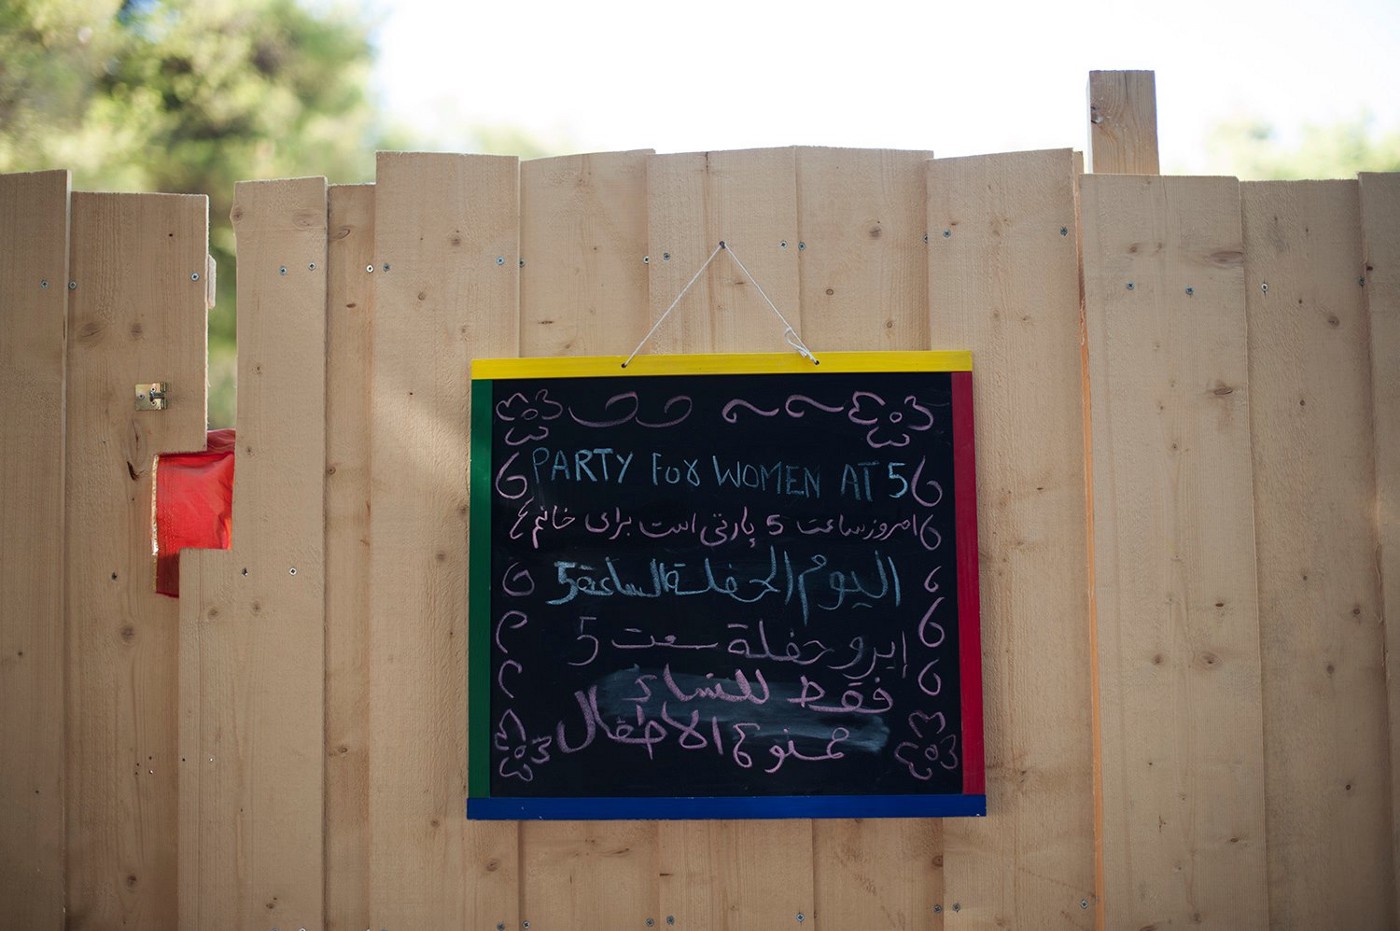 PARTY FOR WOMEN AT 5
امروز ساعت 5 پارتی است برای خانم
اليوم الحفلة الساعة 5
ايرو حفلة سعت 5
فقط للنساء
ممنوع الاطفال